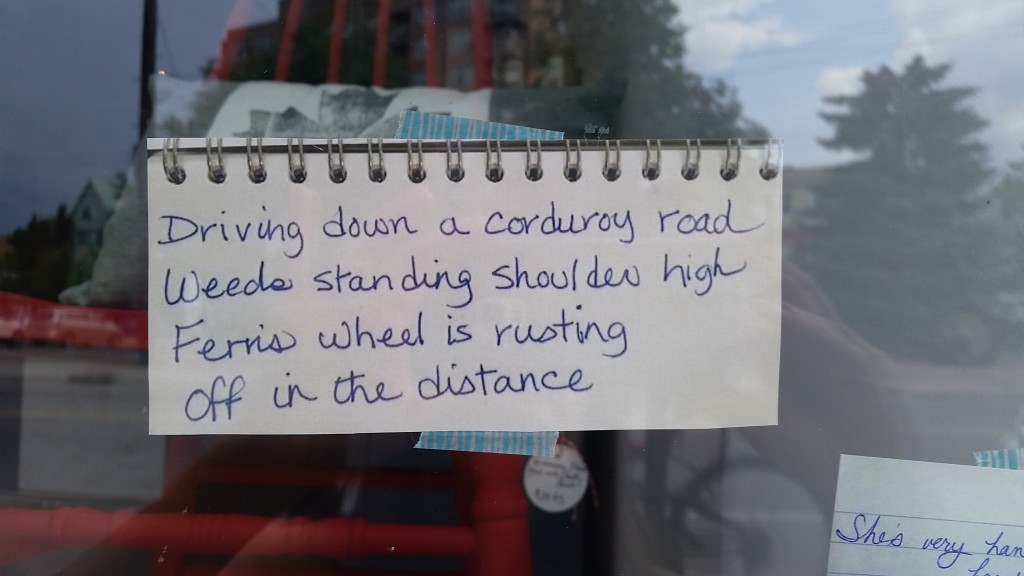 Driving down a corduroy road
Weeds standing shoulder high
Ferris wheel is rusting
off in the distance
She's very